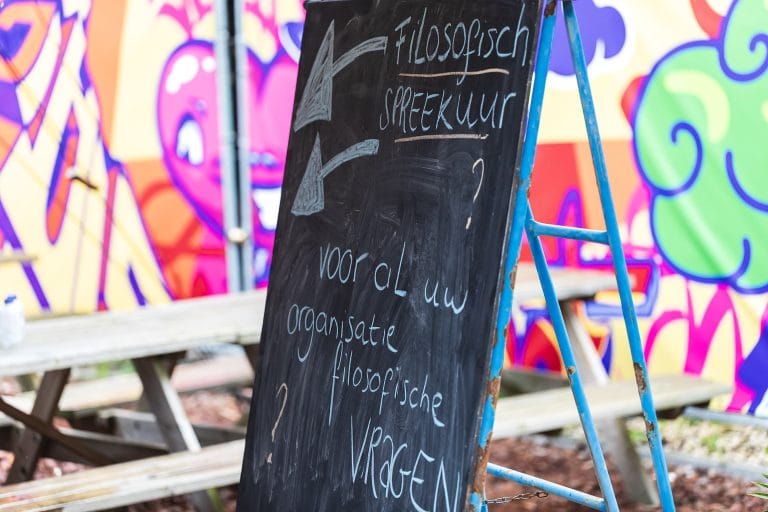 Filosofisch
SPREEKUUR
?
voor al uw
organisatie
filosofische
?
VRAGEN